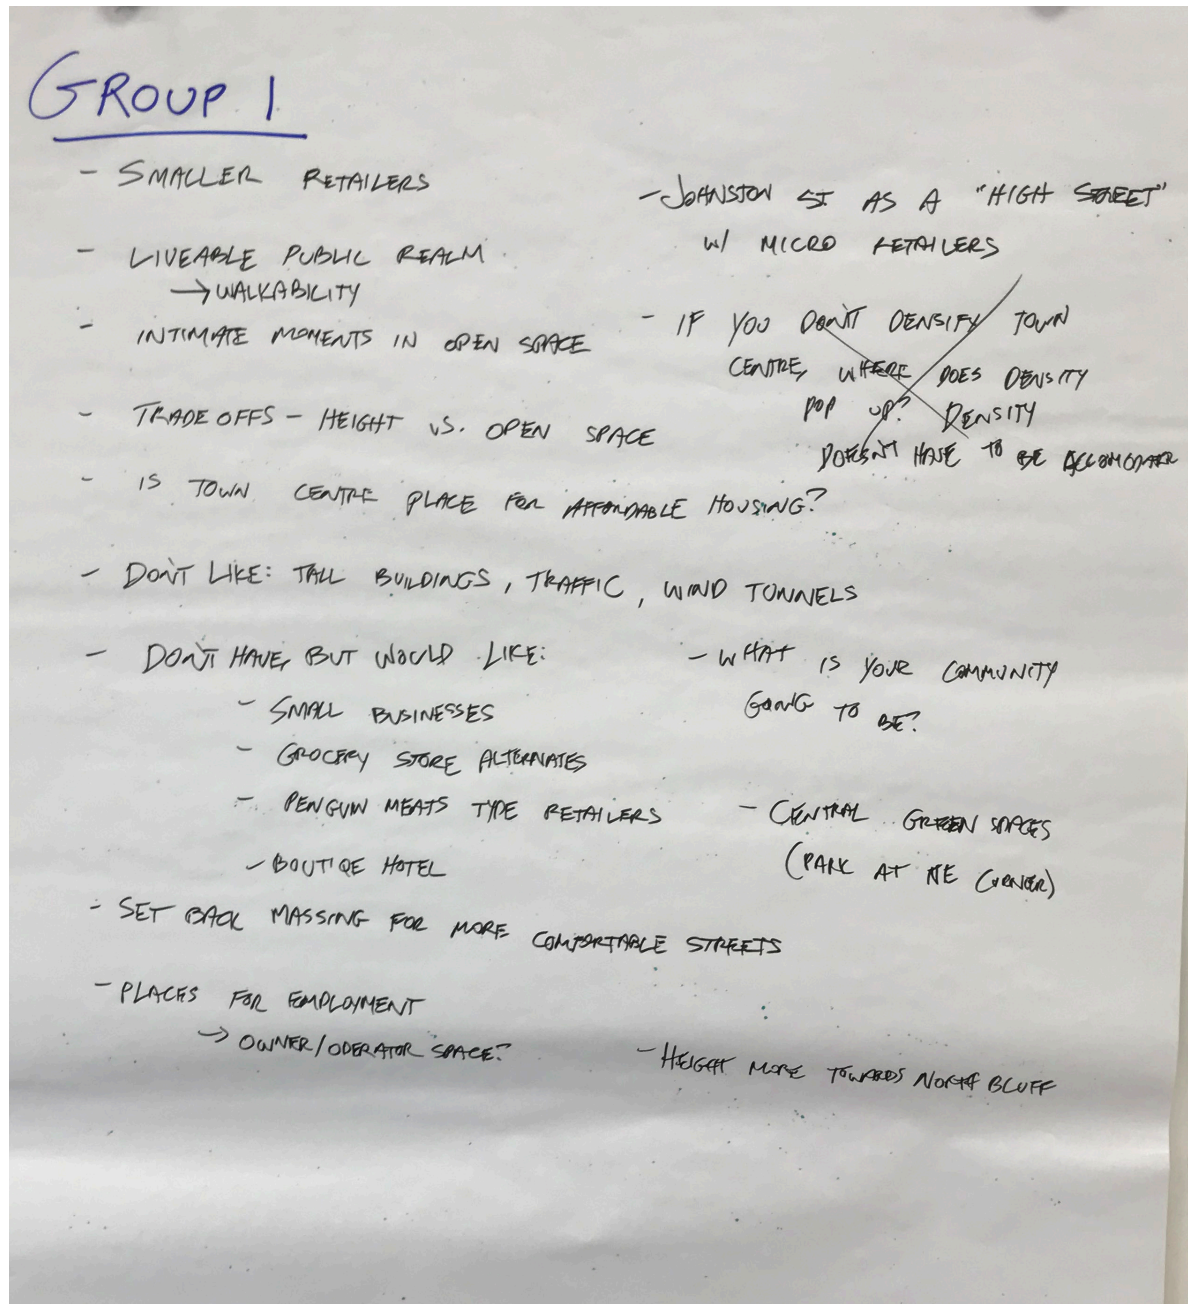 GROUP 1
- SMALLER RETAILERS
- LIVEABLE PUBLIC REALM
→ WALKABILITY
- INTIMATE MOMENTS IN OPEN SPACE
- TRADE OFFS - HEIGHT VS. OPEN SPACE
- IS TOWN CENTRE PLACE FOR AFFORDABLE HOUSING?
- DON'T LIKE: TALL BUILDINGS, TRAFFIC, WIND TUNNELS
- DON'T HAVE, BUT WOULD LIKE:
- SMALL BUSINESSES
- GROCERY STORE ALTERNATES
- PENGUIN MEATS TYPE RETAILERS
- BOUTIQE HOTEL
- SET BACK MASSING FOR MORE COMFORTABLE STREETS
- PLACES FOR EMPLOYMENT
→ OWNER/OPERATOR SPACE?
- JOHNSTON ST AS A "HIGH STREET"
W/ MICRO RETAILERS
- IF YOU DON'T DENSIFY TOWN
CENTRE, WHERE DOES DENSITY
POP UP? DENSITY
DOESN'T HAVE TO BE
- WHAT IS YOUR COMMUNITY
GOING TO BE?
- CENTRAL GREEN SPACES
(PARK AT NE CORNER)
- HEIGHT MORE TOWARDS NORTH BLUFF